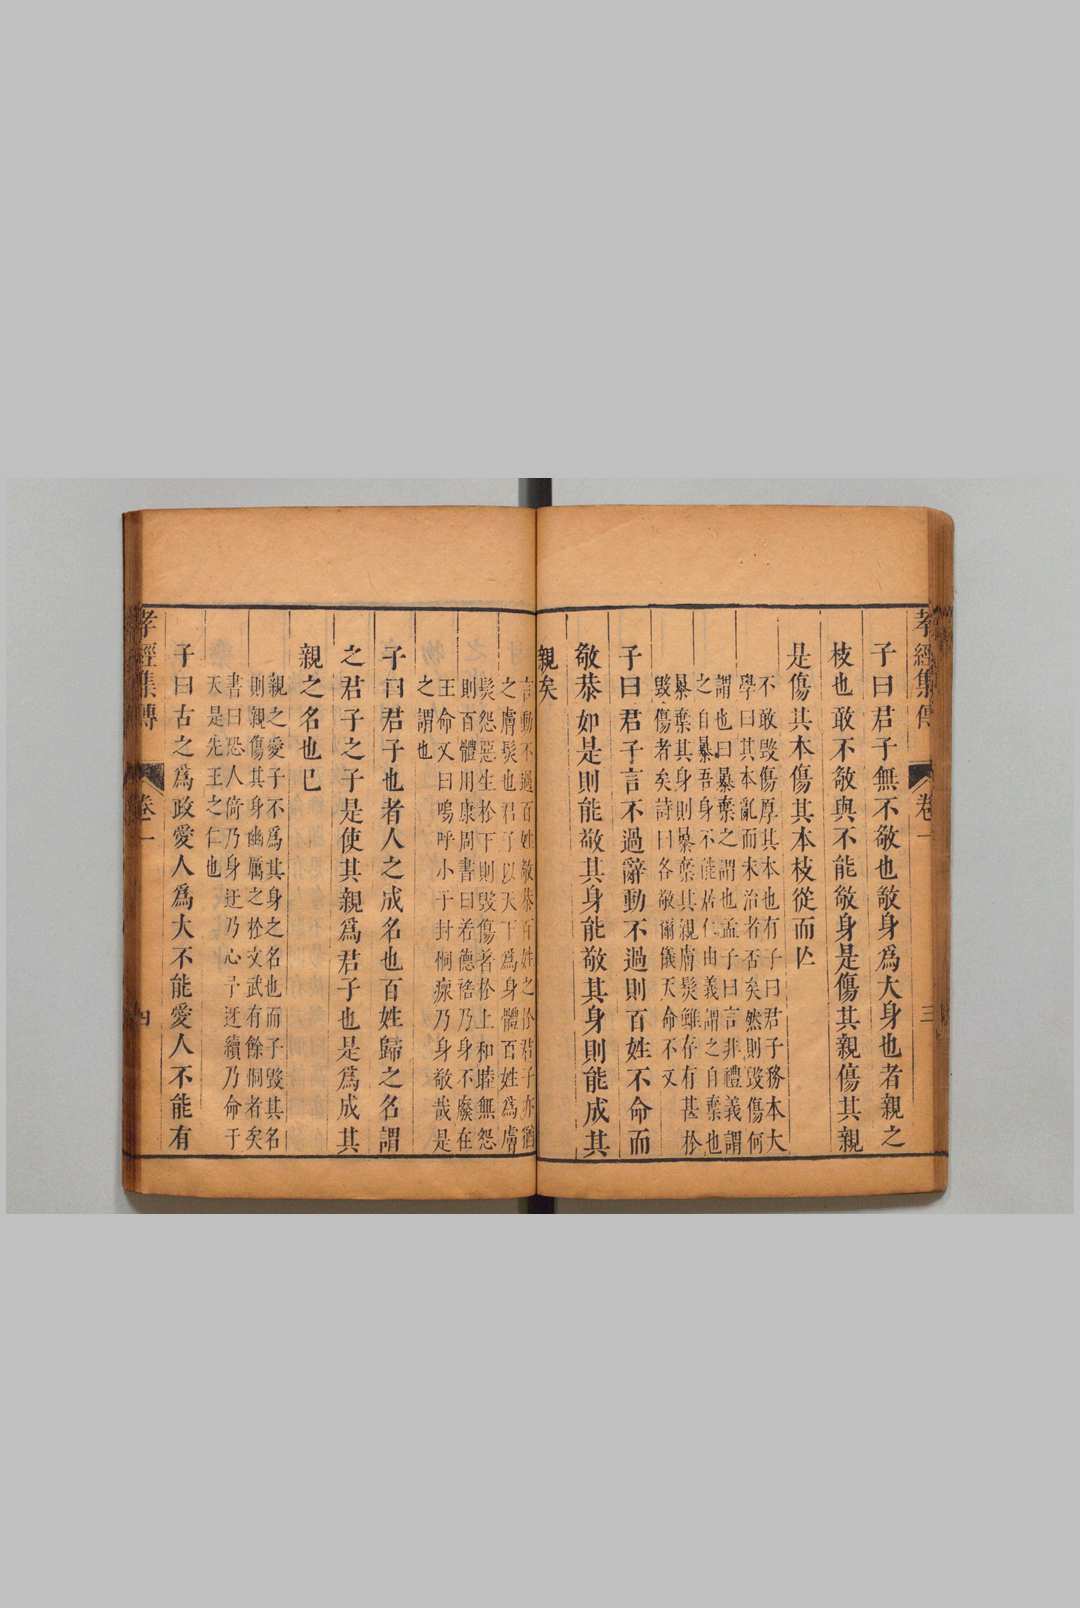 孝經集傳 卷一 三
子曰君子無不敬也敬身爲大身也者親之
枝也敢不敬與不能敬身是傷其親傷其親
是傷其本傷其本枝從而亾
不敢毀傷厚其本也有子曰君子務本大
學曰其本亂而末治者否矣然則毀傷何
謂也曰暴棄之謂也孟子曰言非禮義謂
之自暴吾身不能居仁由義謂之自棄也
暴棄其身則暴棄其親膚髮雖存有甚於
毀傷者矣詩曰各敬爾儀天命不又
子曰君子言不過辭動不過則百姓不命而
敬恭如是則能敬其身能敬其身則能成其
親矣
言動不過百姓敬恭百姓之於君子亦猶
之膚髮也君子以天下爲身體百姓爲膚
髮怨惡生於下則毀傷者於上和睦無怨
則百體用康周書曰若德裕乃身不廢在
王命又曰嗚呼小子封恫瘝乃身敬哉是
之謂也
子曰君子也者人之成名也百姓歸之名謂
之君子之子是使其親爲君子也是爲成其
親之名也已
親之愛子不爲其身之名也而子毀其名
則親傷其身幽厲之於文武有餘恫者矣
書曰恐人倚乃身迂乃心予迓續乃命于
天是先王之仁也
子曰古之爲政愛人爲大不能愛人不能有
孝經集傳 卷一 四